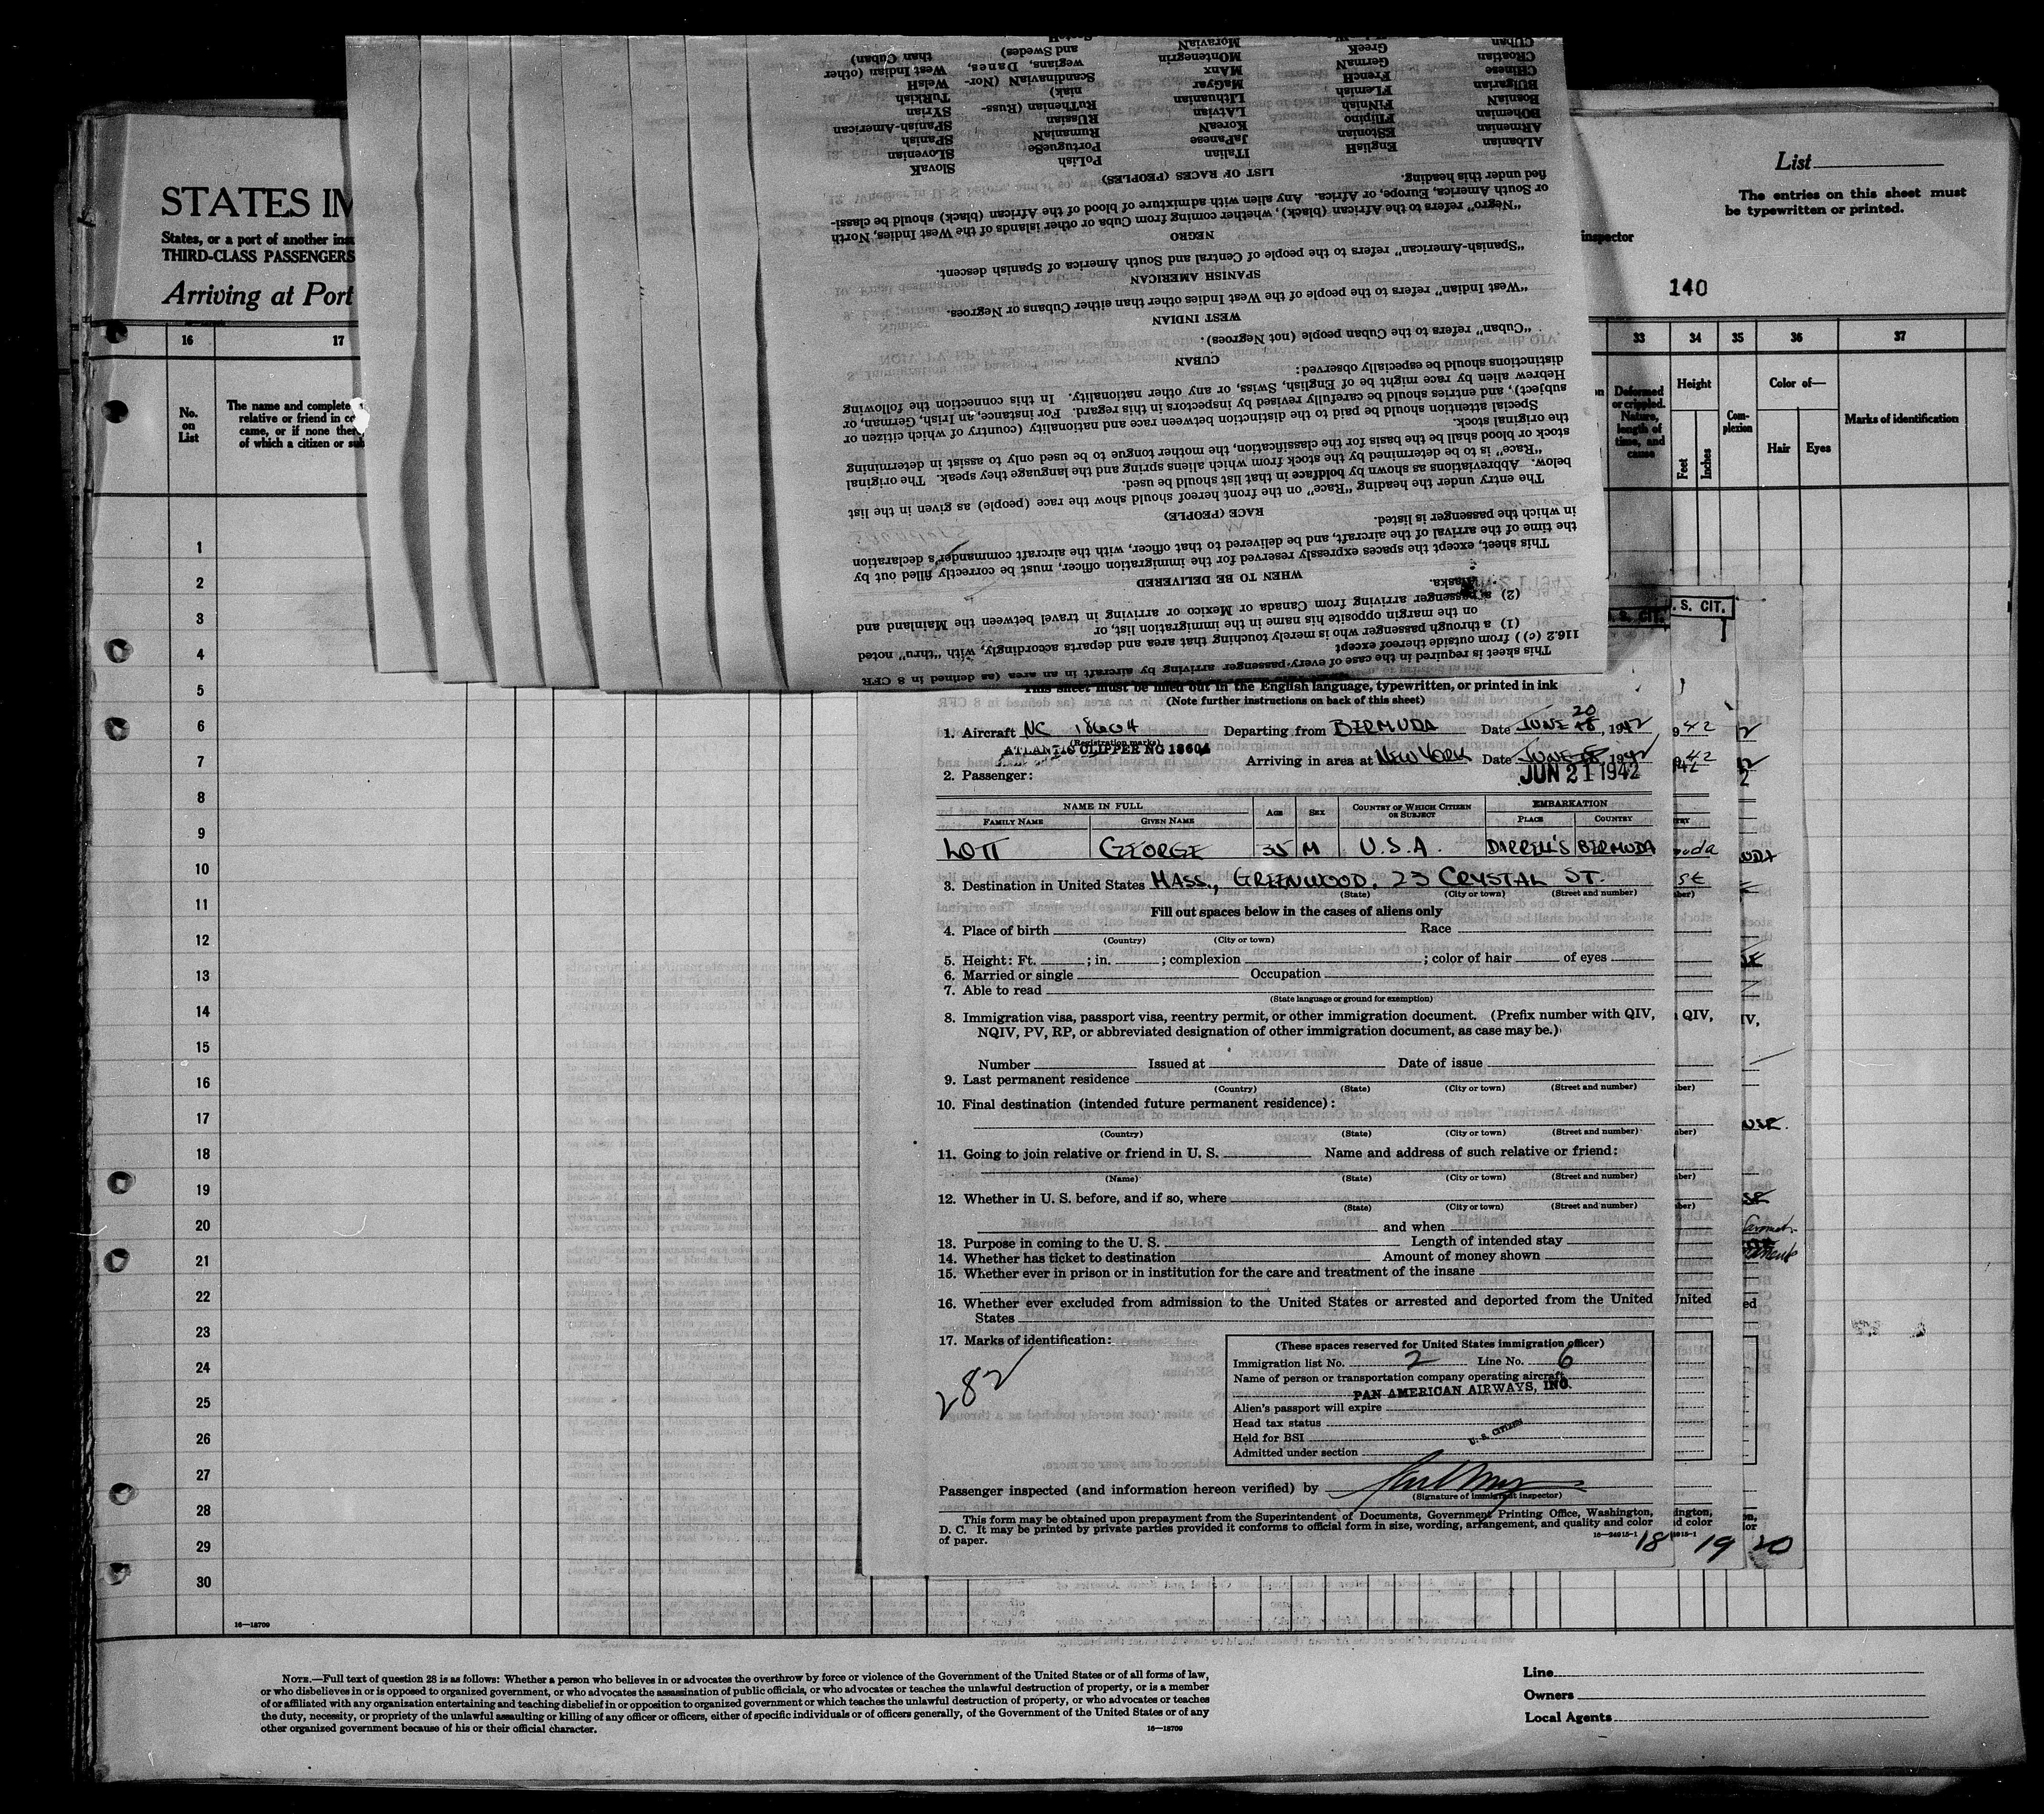 STATES IM
States, or a port of another ins
THIRD-CLASS PASSENGERS
Arriving at Port
List
The entries on this sheet must
be typewritten or printed.
inspector
140
16
17
33
34
35
36
37
No.
on
List
The name and complete
relative or friend in co
came, or if none ther
of which a citizen or sub
Deformed
or crippled.
Nature,
length of
time, and
cause
Height
Feet
Inches
Com-
plexion
Color of—
Hair
Eyes
Marks of identification
1
2
3
4
5
6
7
8
9
10
11
12
13
14
15
16
17
18
19
20
21
22
23
24
25
26
27
28
29
30
16—18709
This sheet is required in the case of every passenger arriving by aircraft in an area (as defined in 8 CFR
116.2 (c)) from outside thereof except
(1) a through passenger who is merely touching that area and departs accordingly, with "thru" noted
on the margin opposite his name in the immigration list, or
(2) a passenger arriving from Canada or Mexico or arriving in travel between the Mainland and
Alaska.
WHEN TO BE DELIVERED
This sheet, except the spaces expressly reserved for the immigration officer, must be correctly filled out by
the time of the arrival of the aircraft, and be delivered to that officer, with the aircraft commander's declaration
in which the passenger is listed.
RACE (PEOPLE)
The entry under the heading "Race" on the front hereof should show the race (people) as given in the list
below. Abbreviations as shown by boldface in that list should be used.
"Race" is to be determined by the stock from which aliens spring and the language they speak. The original
stock or blood shall be the basis for the classification, the mother tongue to be used only to assist in determining
the original stock.
Special attention should be paid to the distinction between race and nationality (country of which citizen or
subject), and entries should be carefully revised by inspectors in this regard. For instance, an Irish, German, or
Hebrew alien by race might be of English, Swiss, or any other nationality. In this connection the following
distinctions should be especially observed:
CUBAN
"Cuban" refers to the Cuban people (not Negroes).
WEST INDIAN
"West Indian" refers to the people of the West Indies other than either Cubans or Negroes.
SPANISH AMERICAN
"Spanish-American" refers to the people of Central and South America of Spanish descent.
NEGRO
"Negro" refers to the African (black), whether coming from Cuba or other islands of the West Indies, North
or South America, Europe, or Africa. Any alien with admixture of blood of the African (black) should be classi-
fied under this heading.
LIST OF RACES (PEOPLES)
ALbanian EnglisH ITalian PoLish SlovaK
ARmenian EStonian JaPanese PortugueSe SLovenian
BOhemian FIlipino KoreaN RumaniaN SPanisH
BosniaN FINnish LAtvian RUssian SPanish-American
BUlgarian FLemish LIthuanian RuThenian (Russ- SYrian
CHinese FrencH MaGyar niak) TuRkish
CRoatian GermaN MAnx ScandinaviaN (Nor- WelsH
CUban GreeK MOntenegrin wegians, Danes, West Indian (other
MoraviaN and Swedes) than Cuban)
U.S. CIT.
S. CIT.
This sheet must be filled out in the English language, typewritten, or printed in ink
(Note further instructions on back of this sheet)
1. Aircraft NC 18604 Departing from BERMUDA Date JUNE 20 18, 1942
(Registration marks)
ATLANTIC CLIPPER NC 18604
Arriving in area at NEW YORK Date JUNE 18, 1942
2. Passenger: JUN 21 1942
NAME IN FULL
FAMILY NAME
GIVEN NAME
AGE
SEX
COUNTRY OF WHICH CITIZEN
OR SUBJECT
EMBARKATION
PLACE
COUNTRY
LOTT GEORGE 35 M U.S.A. DARRELL'S BERMUDA
3. Destination in United States MASS., GREENWOOD, 23 CRYSTAL ST.
(State) (City or town) (Street and number)
Fill out spaces below in the cases of aliens only
4. Place of birth Race
(Country) (City or town)
5. Height: Ft. ; in. ; complexion ; color of hair of eyes
6. Married or single Occupation
7. Able to read
(State language or ground for exemption)
8. Immigration visa, passport visa, reentry permit, or other immigration document. (Prefix number with QIV,
NQIV, PV, RP, or abbreviated designation of other immigration document, as case may be.)
Number Issued at Date of issue
9. Last permanent residence
(Country) (State) (City or town) (Street and number)
10. Final destination (intended future permanent residence):
(Country) (State) (City or town) (Street and number)
11. Going to join relative or friend in U. S. Name and address of such relative or friend:
(Name) (State) (City or town) (Street and number)
12. Whether in U. S. before, and if so, where
(State) (City or town) (Street and number)
and when
13. Purpose in coming to the U. S. Length of intended stay
14. Whether has ticket to destination Amount of money shown
15. Whether ever in prison or in institution for the care and treatment of the insane
16. Whether ever excluded from admission to the United States or arrested and deported from the United
States
17. Marks of identification:
282
(These spaces reserved for United States immigration officer)
Immigration list No. 2 Line No. 6
Name of person or transportation company operating aircraft
PAN AMERICAN AIRWAYS, INC.
Alien's passport will expire
Head tax status
Held for BSI U. S. CITIZEN
Admitted under section
Passenger inspected (and information hereon verified) by
(Signature of immigrant inspector)
This form may be obtained upon prepayment from the Superintendent of Documents, Government Printing Office, Washington,
D. C. It may be printed by private parties provided it conforms to official form in size, wording, arrangement, and quality and color
of paper.
16—24915-1
18 19 20
NOTE.—Full text of question 28 is as follows: Whether a person who believes in or advocates the overthrow by force or violence of the Government of the United States or of all forms of law,
or who disbelieves in or is opposed to organized government, or who advocates the assassination of public officials, or who advocates or teaches the unlawful destruction of property, or is a member
of or affiliated with any organization entertaining and teaching disbelief in or opposition to organized government or which teaches the unlawful destruction of property, or who advocates or teaches
the duty, necessity, or propriety of the unlawful assaulting or killing of any officer or officers, either of specific individuals or of officers generally, of the Government of the United States or of any
other organized government because of his or their official character.
16—18709
Line
Owners
Local Agents